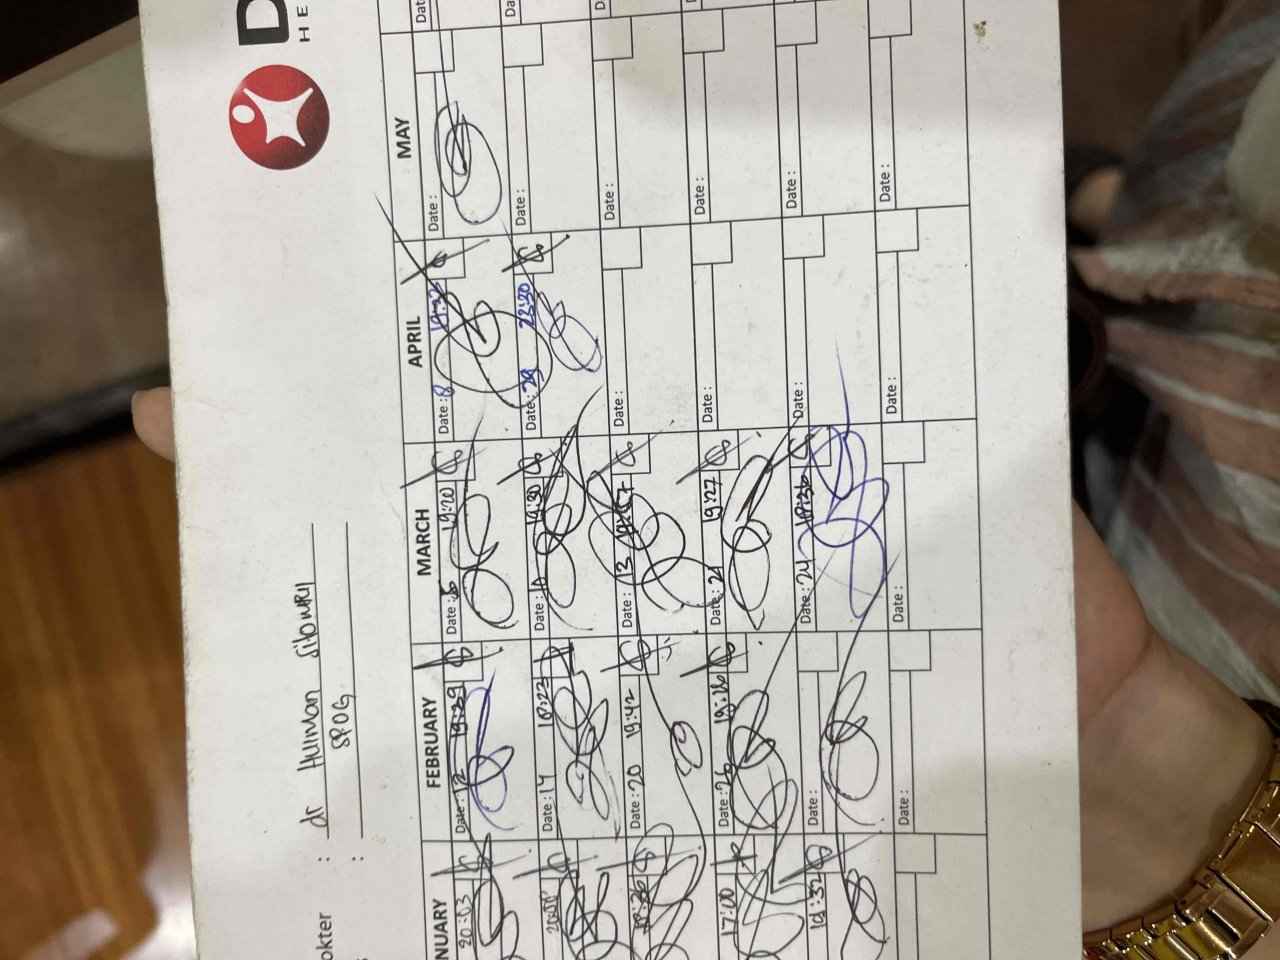 D
H E
okter : dr HULMAN SITOMPUL
: SPOG
NUARY
FEBRUARY
MARCH
APRIL
MAY
20:03
Date : 12 19:29
Date : 5 19:20
Date : 8 19:32
Date :
Date : 14 18:22
Date : 19:30
Date : 29 22:30
Date :
Da
Date : 20 19:42
Date : 13
Date :
Date :
D
17:00
Date : 26 19:16
Date : 21 19:27
Date :
Date :
19:32
Date :
Date : 24 18:36
Date :
Date :
Date :
Date :
Date :
Date :